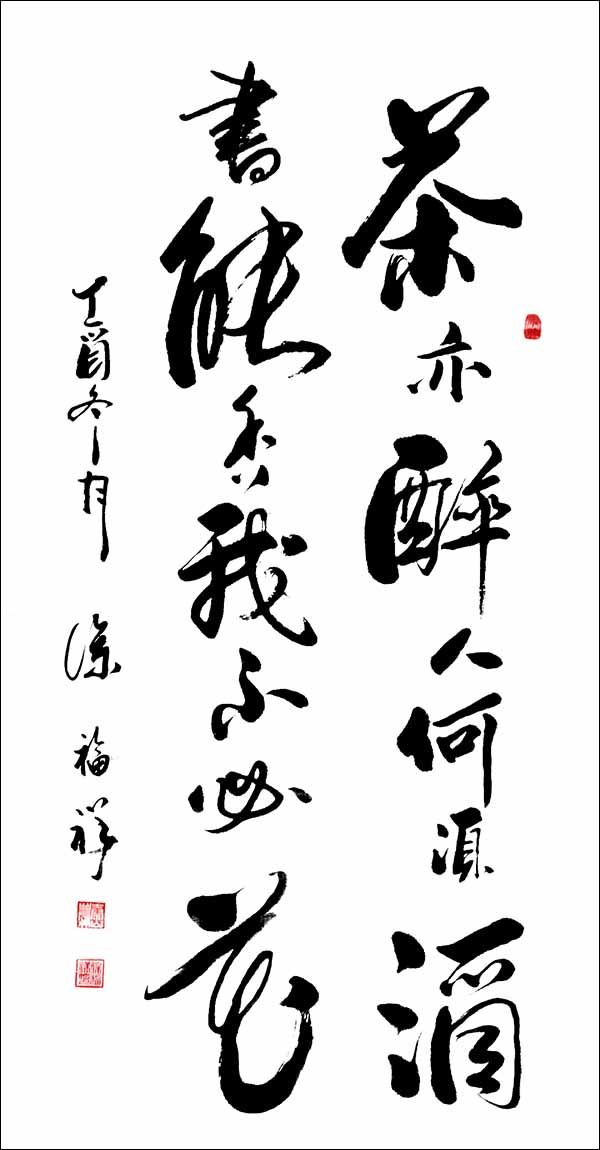 茶亦醉人何須酒
書能香我不必花
丁酉冬月 福祥